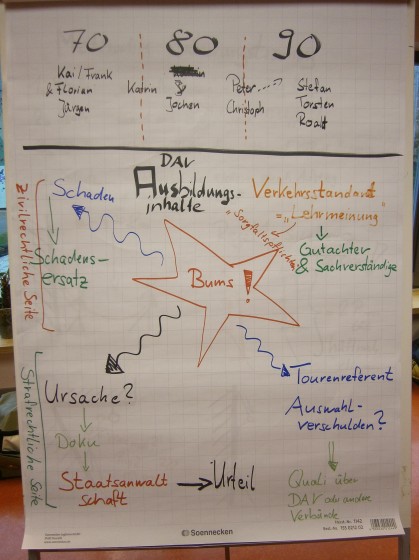 70 80 90
Kai/Frank
& Florian
Jürgen
Katrin &
Jochen
Peter
Christoph
Stefan
Torsten
Roald
DAV
Ausbildungs-
inhalte
Zivilrechtliche Seite
Schaden
Schadens-
ersatz
Verkehrsstandard
= „Lehrmeinung"
„Sorgfaltspflichten"
Gutachter
& Sachverständige
Bums!
Strafrechtliche Seite
Ursache?
Doku
Staatsanwalt
schaft
Urteil
Tourenreferent
Auswahl-
verschulden?
Quali über
DAV oder andere
Verbände
Soennecken